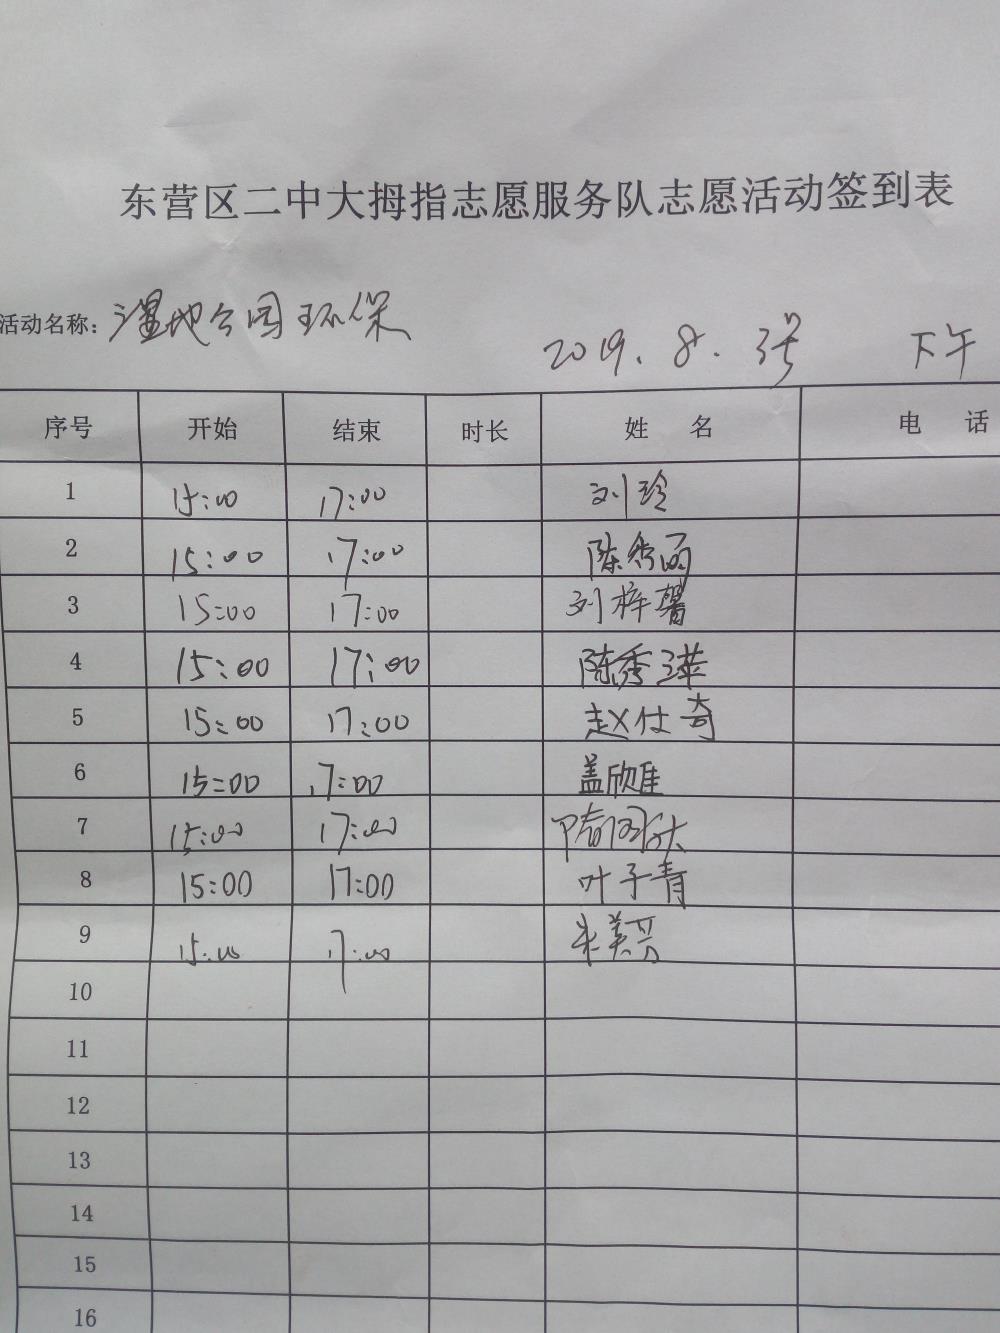 东营区二中大拇指志愿服务队志愿活动签到表
活动名称：湿地公园环保
2019.8.3号 下午
序号 开始 结束 时长 姓 名 电 话
1 15:00 17:00 刘玲
2 15:00 17:00 陈秀丽
3 15:00 17:00 刘梓馨
4 15:00 17:00 陈秀瑛
5 15:00 17:00 赵仕奇
6 15:00 17:00 盖欣隹
7 15:00 17:00
8 15:00 17:00 叶子青
9 15:00 17:00 朱美
10
11
12
13
14
15
16